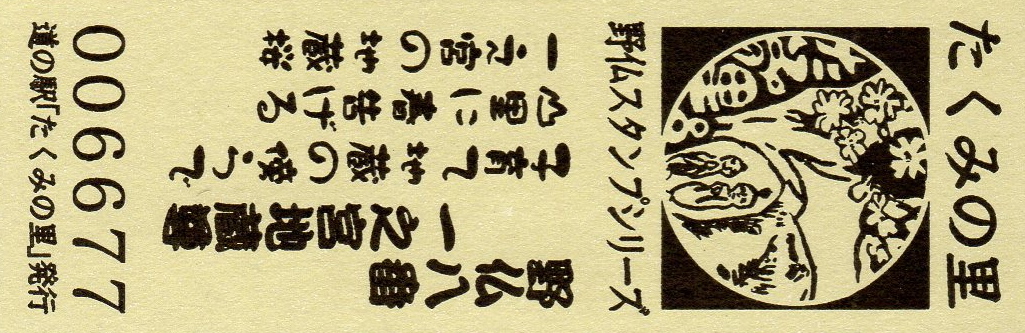 たくみの里
野仏スタンプシリーズ
野仏八番
一之宮地蔵尊
子育て地蔵の傍らで
山里に春告げる
一之宮の地蔵桜
006677
道の駅「たくみの里」発行